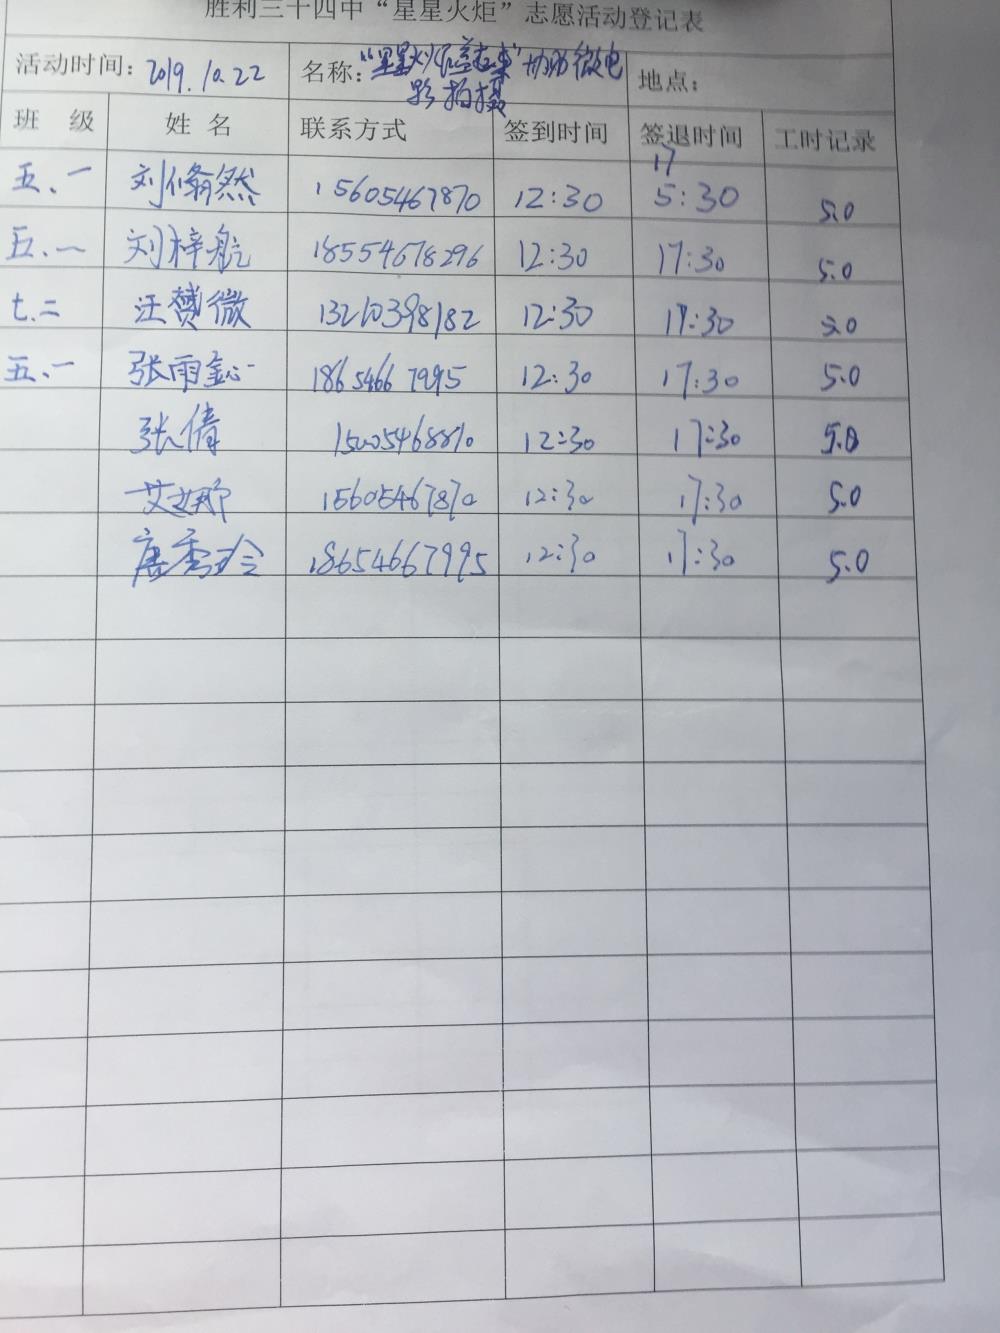 胜利三十四中“星星火炬”志愿活动登记表
活动时间：2019.10.22 名称：“星星火炬 ”协助微电 地点：
影拍摄
班 级 姓 名 联系方式 签到时间 签退时间 工时记录
17
五、一 刘翛然 15605467870 12:30 5:30 5.0
五、一 刘梓航 18554678296 12:30 17:30 5.0
七、二 汪赞微 13210398182 12:30 17:30 5.0
五、一 张雨鑫 18654667995 12:30 17:30 5.0
张倩 12:30 17:30 5.0
艾 15605467870 12:30 17:30 5.0
唐秀玲 18654667995 12:30 17:30 5.0